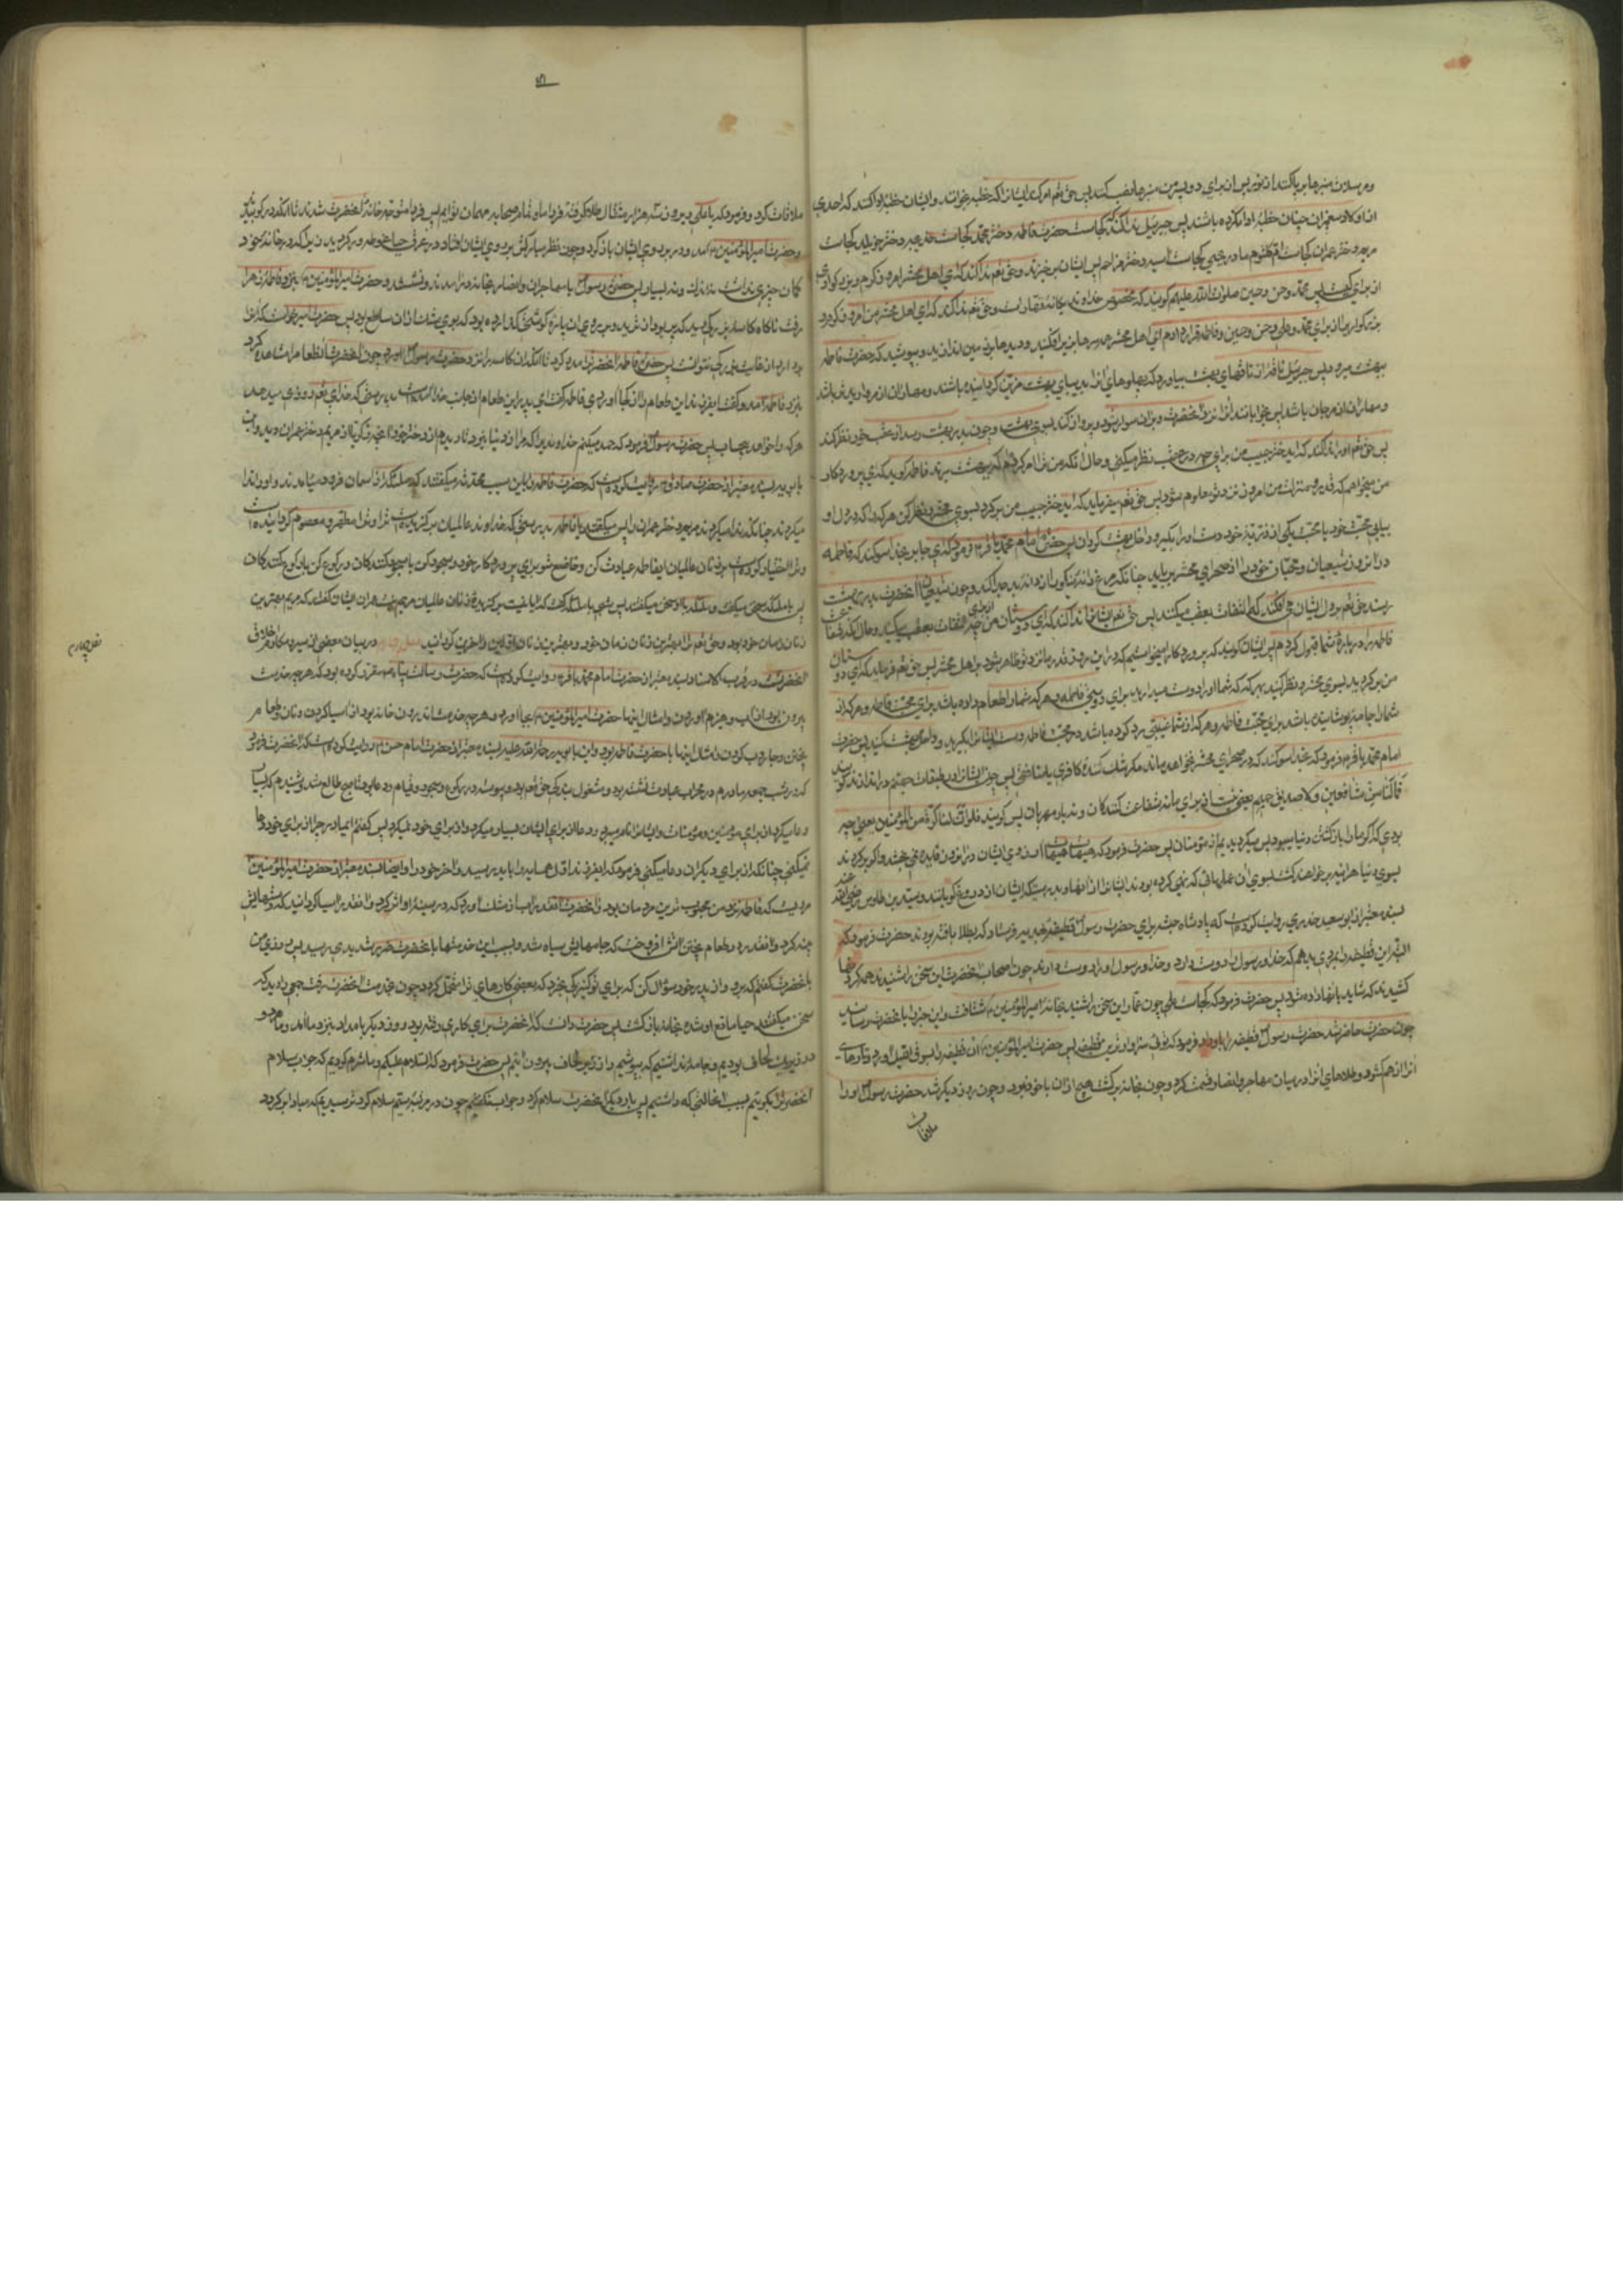 و مرسلان منبرها برپا کنند از نور پس از برای دو پسر من منبرها نصب کنند پس حق تعم امر کند ایشانرا که خطبه بخوانند و ایشان خطبهٔ ادا کنند که احدی
از اولاد پیغمبران چنان خطبهٔ ادا نکرده باشند پس جبرئیل ندا کند که کجاست حضرت فاطمه دختر محمد کجاست خدیجه دختر خویلد کجاست
مریم دختر عمران کجاست ام کلثوم مادر یحیی کجاست آسیه دختر مزاحم پس ایشان برخیزند و حق تعم ندا کند که ای اهل محشر امروز کرم و بزرگواری
از برای کیست پس محمد و حسن و حسین صلوات الله علیهم گویند که مخصوص خداوند یگانه قهار است و حق تعم ندا کند که ای اهل محشر من امروز کرم و
بزرگواری را از برای محمد و علی و حسن و حسین و فاطمه قرار دادم ای اهل محشر سرها بزیر افکنید و دیدها برهم گذارید که حضرت فاطمه
ببهشت میرود پس جبرئیل ناقهٔ از ناقهای بهشت بیاورد که پهلوهای آنرا بدیبای بهشت مزین گردانیده باشند و مهار آن از مروارید تر باشد
و جهاز آن از مرجان باشد پس بخوابانند آنرا نزد آنحضرت و بر آن سوار شود و پرواز کند بسوی بهشت و چون بدر بهشت رسد از عقب خود نظر کند
پس حق تعم او را ندا کند که ای دختر حبیب من برای چه در عقب نظر میکنی و حال آنکه من ترا امر کردم که ببهشت برند فاطمه گوید که ای پروردگار
من میخواهم که قدر و منزلت من امروز نزد تو معلوم شود پس حق تعم میفرماید که ای دختر حبیب من برگرد بسوی محشر و نظر کن هر که را که در دل او
بیابی محبت خود یا محبت یکی از ذریهٔ خود دست او را بگیر و داخل بهشت گردان پس حضرت امام محمد باقر ع فرمود که ای جابر بخدا سوگند که فاطمه
در آنروز شیعیان و محبان خود را از صحرای محشر برباید چنانکه مرغ دانهٔ نیکو را از دانهٔ بد جدا کند و چون شیعیان آنحضرت بدر بهشت
رسند حق تعم در دل ایشان می‌افکند که التفات بعقب میکنند پس حق تعم ایشانرا ندا کند که ای دوستان من از برای چه التفات بعقب میکنید و حال آنکه شفاعت
فاطمه را در بارهٔ شما قبول کردم پس ایشان گویند که پروردگارا میخواستیم که در این روز قدر ما نزد تو ظاهر شود بر اهل محشر پس حق تعم فرماید که ای دوستان
من برگردید بسوی محشر و نظر کنید بهر که که شما را دوست میدارد برای دوستی فاطمه و هر که شما را اطعام داده باشد برای محبت فاطمه و هر که از
شما را جامه پوشانیده باشد برای محبت فاطمه و هر که از شما غیبتی رد کرده باشد در محبت فاطمه دست ایشانرا بگیرید و داخل بهشت کنید پس حضرت
امام محمد باقر ع فرمود که بخدا سوگند که در صحرای محشر نخواهد ماند مگر شک کنندهٔ یا کافری یا منافقی پس چون ایشانرا در طبقات جهنم در اندازند گویند
فما لنا من شافعین و لا صدیق حمیم یعنی نیست از برای ما شفاعت کنندگان و نه یار مهربان پس گویند فلو ان لنا کرة فنکون من المؤمنین یعنی چه
بودی که اگر ما را بازگشتن دنیا میبود پس میگردیدیم از مؤمنان پس حضرت فرمود که هیهات هیهات آرزوی ایشان در آنروز فایده نمی بخشد و اگر برگردند
بسوی دنیا هر آینه برخواهند گشت بسوی آن عملهائی که نهی کرده بودند ایشانرا از آنها و بدرستیکه ایشان از دروغ گویانند و سید بن طاوس رضی الله عنه
بسند معتبر از ابو سعید خدری روایت کرده است که پادشاه حبشه برای حضرت رسول ص قطیفهٔ هدیه فرستاد که بطلا بافته بودند حضرت فرمود که
البته این قطیفه را بمردی بدهم که خدا و رسول را دوست دارد و خدا و رسول او را دوست دارند چون اصحاب آنحضرت این سخن را شنیدند همه گردنها
کشیدند که شاید بآنها داده شود پس حضرت فرمود که کجاست علی چون عمار این سخن را شنید بخانهٔ امیر المؤمنین ع شتافت و این خبر را بآنحضرت رسانید
چون حضرت حاضر شد حضرت رسول ص قطیفه را باو داد و فرمود که توئی سزاوار این قطیفه پس حضرت امیر المؤمنین ع آن قطیفه را بسوق اللیل آورد و تارهای
آنرا از هم گشود و طلاهای آنرا در میان مهاجر و انصار قسمت کرد و چون بخانه برگشت هیچ از آن با خود نبود و چون روز دیگر شد حضرت رسول ص او را
ملاقات
ملاقات کرد و فرمود که یا علی دیروز سه هزار مثقال طلا گرفتهٔ فردا ما و تمام صحابه مهمان توایم پس فردا متوجه خانهٔ آنحضرت شدند تا آنکه در کوبیدند
و حضرت امیر المؤمنین ع آمد و در بروی ایشان باز کرد و چون نظر مبارکش بر روی ایشان افتاد در عرق حیا غوطه ور گردید زیرا که در خانه خود
گمان چیزی نداشت نه اندک و نه بسیار پس حضرت رسول ص با مهاجران و انصار بخانه در آمدند و نشستند و حضرت امیر المؤمنین ع بنزد فاطمه زهرا
رفت ناگاه کاسهٔ بزرگی دید که پر بود از ثرید و بر روی آن پارهٔ گوشتی گذارده بود که بوی مشک از آن ساطع بود پس حضرت امیر خواست که آنرا
بردارد از غایت بزرگی نتوانست پس حضرت فاطمه آنحضرترا مدد کرد تا آنکه آن کاسه را نزد حضرت رسول ص آورد چون آنحضرت آن طعام را مشاهده کرد
بنزد فاطمه آمد و گفت ای فرزند این طعام را از کجا آوردی فاطمه گفت ای پدر این طعام از جانب خدا آمده است بدرستیکه خدای تعم روزی میدهد
هر که را خواهد بیحساب پس حضرت رسول ص فرمود که حمد میکنم خداوندی را که مرا از دنیا نبرد تا دیدم از دختر خود آنچه زکریا از مریم دختر عمران دید و ابن
بابویه بسند معتبر از حضرت صادق ع روایت کرده است که حضرت فاطمه را باین سبب محدثه میگفتند که ملئکه از آسمان فرود میآمدند و او را ندا
میکردند چنانکه ندا میکردند مریم دختر عمران را پس میگفتند یا فاطمه بدرستیکه خداوند عالمیان برگزیده است ترا و ترا مطهر و معصوم گردانیده است
و ترا اختیار کرده است بر زنان عالمیان ای فاطمه عبادت کن و خاضع شو برای پروردگار خود و سجود کن با سجود کنندگان و رکوع کن با رکوع کنندگان
پس با ملئکه سخن میگفت و ملئکه با او سخن میگفتند پس شبی با ملئکه گفت که آیا نیست برگزیدهٔ زنان عالمیان مریم دختر عمران ایشان گفتند که مریم بهترین
زنان زمان خود بود و حق تعم ترا بهترین زنان زمان خود و بهترین زنان اولین و آخرین گردانید در بیان بعضی از سیر و مکارم اخلاق
آنحضرت در قرب الاسناد بسند معتبر از حضرت امام محمد باقر ع روایت کرده است که حضرت رسالت پناه ص مقرر کرده بود که هر چه خدمت
بیرون بود از آب و هیزم آوردن و امثال اینها حضرت امیر المؤمنین ع بجا آورد و هر چه خدمت اندرون خانه بود از آسیا کردن و نان و طعام
پختن و جاروب کردن و امثال اینها با حضرت فاطمه بود و ابن بابویه رحمة الله علیه بسند معتبر از حضرت امام حسن ع روایت کرده است که آنحضرت فرمود
که در شب جمعه مادرم در محراب عبادت نشسته بود و مشغول بندگی حق تعم بود و پیوسته در رکوع و سجود و قیام و دعا بود تا صبح طالع شد شنیدم که پیوسته
دعا میکرد از برای مؤمنین و مؤمنات و ایشانرا نام میبرد و دعا از برای ایشان بسیار میکرد و از برای خود نمیکرد پس گفتم ای مادر چرا از برای خود دعا
نمیکنی چنانکه از برای دیگران دعا میکنی فرمود که ای فرزند اول همسایه را باید پرسید و آخر خود را و ایضا بسند معتبر از حضرت امیر المؤمنین ع
مرویست که فاطمه نزد من محبوب ترین مردمان بود و آنحضرت آنقدر آب از مشک آورد که در سینهٔ او اثر کرد و آنقدر آسیا گردانید که دستهایش
پینه کرد و آنقدر در زیر طعام پختن آتش افروخت که جامهایش سیاه شد و بسبب این خدمتها بآنحضرت ضرر شدیدی رسید پس روزی من
بآنحضرت گفتم که برو و از پدر خود سؤال کن که برای تو کنیزکی بخرد که بعضی کارهای ترا متحمل گردد چون بخدمت آنحضرت رفت جمعی را دید که
سخن میگفتند حیا مانع او شد و بخانه بازگشت پس حضرت دانست که آنحضرت برای کاری رفته بود و روز دیگر بامداد بنزد ما آمد و ما هر دو
در زیر یک لحاف بودیم و جامه نداشتیم که بپوشیم و از زیر لحاف بیرون آئیم پس حضرت فرمود که السلام علیکم و ما شرم کردیم که جواب سلام
آنحضرترا بگوئیم بسبب آنحالتی که داشتیم پس بار دیگر آنحضرت سلام کرد و جواب نگفتیم چون در مرتبهٔ سیم سلام کرد ترسیدیم که مبادا برگردد